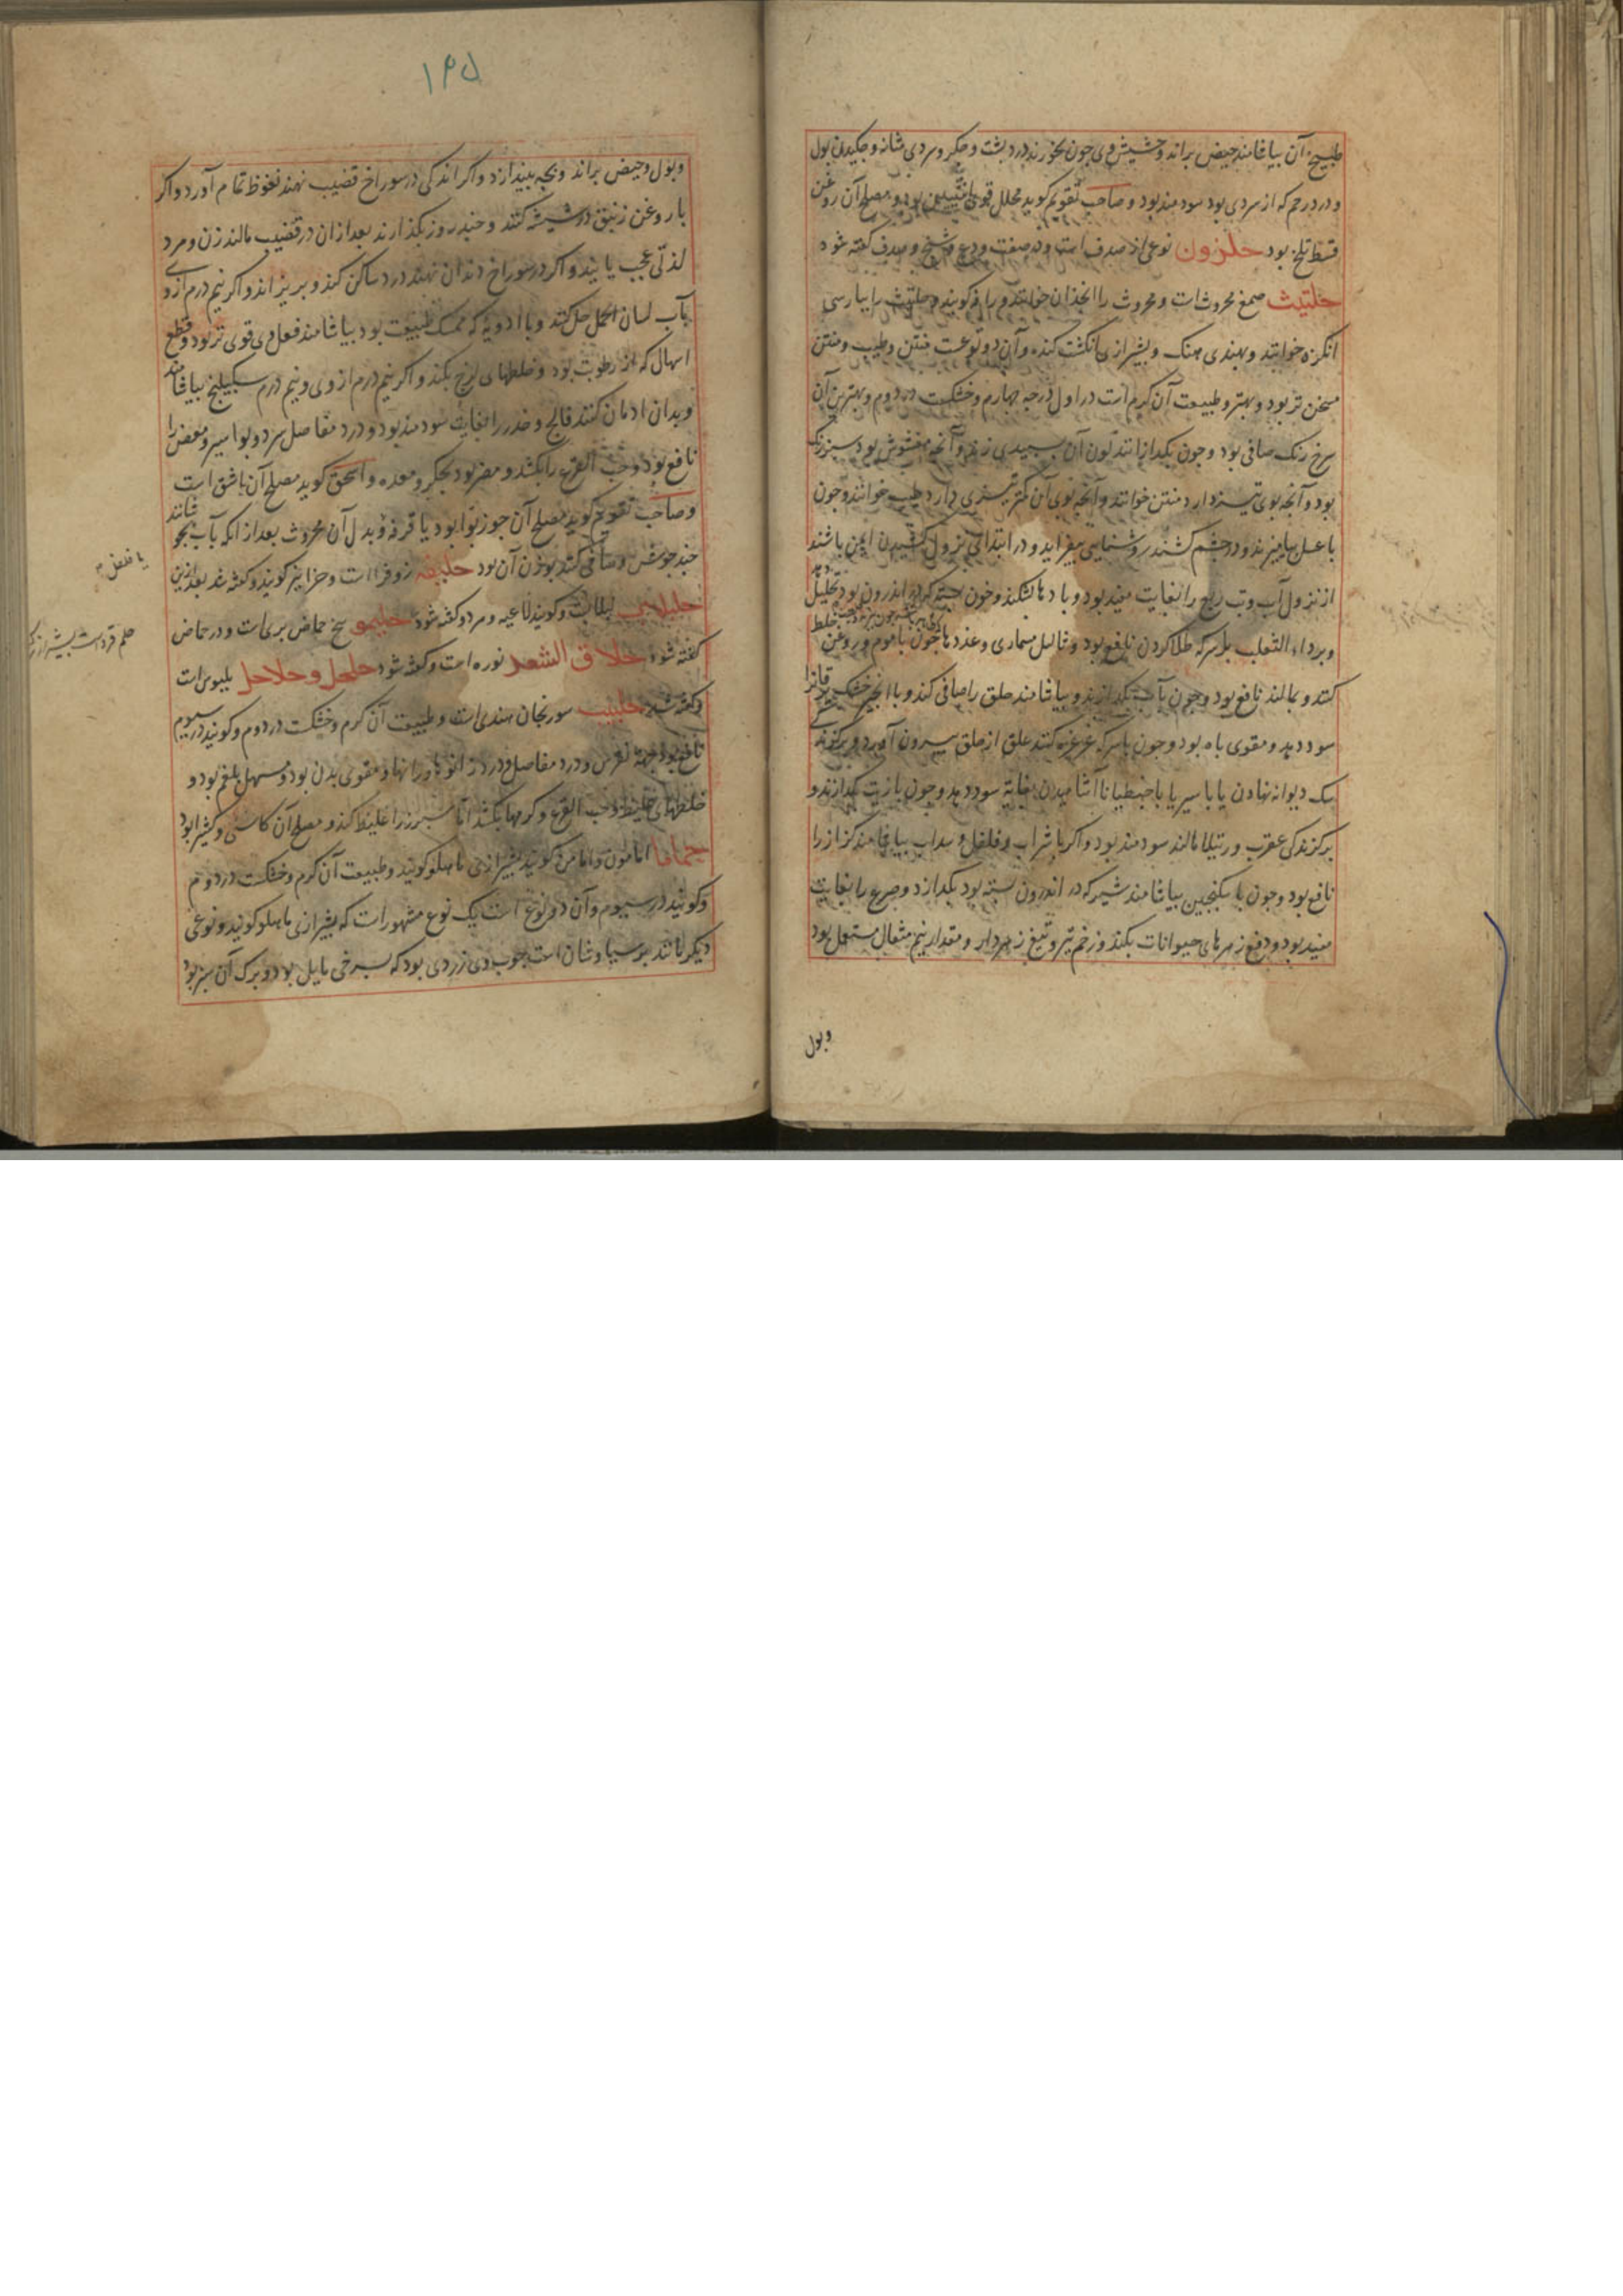 طبیخ آن بیاشامند حیض براند و حشیش وی چون بخورند درد پشت و جگر و سردی مثانه و چکیدن بول
و درد رحم که از سردی بود سودمند بود و صاحب تقویم گوید محلل قوی بود و مصلح آن روغن
قسط تلخ بود حلزون نوعی از صدف است و در صفت ودع و شنج و صدف گفته شود
حلتیث صمغ محروث است و محروث را انجدان خوانند و حلتیث را بپارسی
انکزه خوانند و بهندی هنک و بشیرازی انکشت کنده و آن دو نوعست منتن و طیب و منتن
مسخن تر بود و بهتر و طبیعت آن گرم است در اول درجه چهارم و خشکست در دوم و بهترین آن
سرخ رنک صافی بود و چون بگدازانند لون آن بسپیدی زند و آنچه مغشوش بود سبز رنگ
بود و آنچه بوی تیز دارد منتن خوانند و آنچه بوی آن کمتر تیزی دارد طیب خوانند و چون
با عسل بیامیزند و در چشم کشند روشنایی بیفزاید و در ابتدای نزول کشیدن ایمن باشند
از نزول آب و تب ربع را بغایت مفید بود و بادها بشکند و خون بسته که در اندرون بود تحلیل دهد
و بر داء الثعلب با سرکه طلا کردن نافع بود و ثآلیل مسماری و غددها چون با موم و روغن خلط
کنند و بمالند نافع بود و چون بآب بگدازند و بیاشامند حلق را صافی کند و با انجیر خشک یرقانرا
سود دهد و مقوی باه بود و چون با سرکه غرغره کنند علق از حلق بیرون آورد و بر گزندگی
سک دیوانه نهادن یا با سیر یا با جنطیانا آشامیدن بغایة سود دهد و چون با زیت بگدازند و
بر گزندگی عقرب و رتیلا مالند سودمند بود و اگر با شراب و فلفل و سداب بیاشامند کزاز را
نافع بود و چون با سکنجبین بیاشامند شیر که در اندرون بسته بود بگدازد و صرع را بغایت
مفید بود و دفع زهرهای حیوانات بکند و زخم تیر و تیغ زهردار و مقدار نیم مثقال مستعمل بود
وبول
۱۴۵
و بول و حیض براند و بچه بیندازد و اگر اندکی در سوراخ قضیب نهند نعوظ تمام آورد و اگر
با روغن زنبق در شیشه کنند و چند روز بگذارند بعد از آن در قضیب مالند زن و مرد
لذتی عجب یابند و اگر در سوراخ دندان نهند درد ساکن کند و بریزاند و اگر نیم درم از وی
بآب لسان الحمل حل کنند و با ادویه که ممسک طبیعت بود بیاشامند فعل وی قوی تر بود و قطع
اسهال که از رطوبت بود و خلطهای لزج بکند و اگر نیم درم از وی و نیم درم سکبینج بیاشامند
و بدان ادمان کنند فالج و خدر را بغایت سودمند بود و درد مفاصل سرد و بواسیر و مغص را
نافع بود و حب القرع را بکشد و مضر بود بجگر و معده و اسحق گوید مصلح آن باشق است
و صاحب تقویم گوید مصلح آن جوزبوا بود یا قرفه و بدل آن محروث بعد از انکه بآب بجوشانند
چند جوش و صافی کنند بوزن آن بود حلیفه زوفرا است و حزا نیز گویند و گفته شد بعد ازین
حلبلاب لبلابست و گویند لاعیه و هر دو گفته شود حلیمو بیخ حماض بریست و در حماض
گفته شود حلاق الشعر نوره است و گفته شود حلحل و حلاحل بلبوس است
و گفته شد حلبیب سورنجان هندی است و طبیعت آن گرم و خشکست در دوم و گویند در سیوم
نافع بود جهة نقرس و درد مفاصل و درد زانوها و رانها و مقوی بدن بود و مسهل بلغم بود و
خلطهای غلیظ و حب القرع و کرمها بکشد اما سپرز را غلیظ کند و مصلح آن کاسنی و کثیرا بود
حماما امامون و امامن گویند بشیرازی ماهلو گویند و طبیعت آن گرم و خشکست در دوم
و گویند در سیوم و آن دو نوع است یک نوع مشهور است که بشیرازی ماهلو گویند و نوعی
دیگر مانند پرسیاوشان است چوب وی زردی بود که بسرخی مایل بود و برک آن سبز بود
یا فلفل